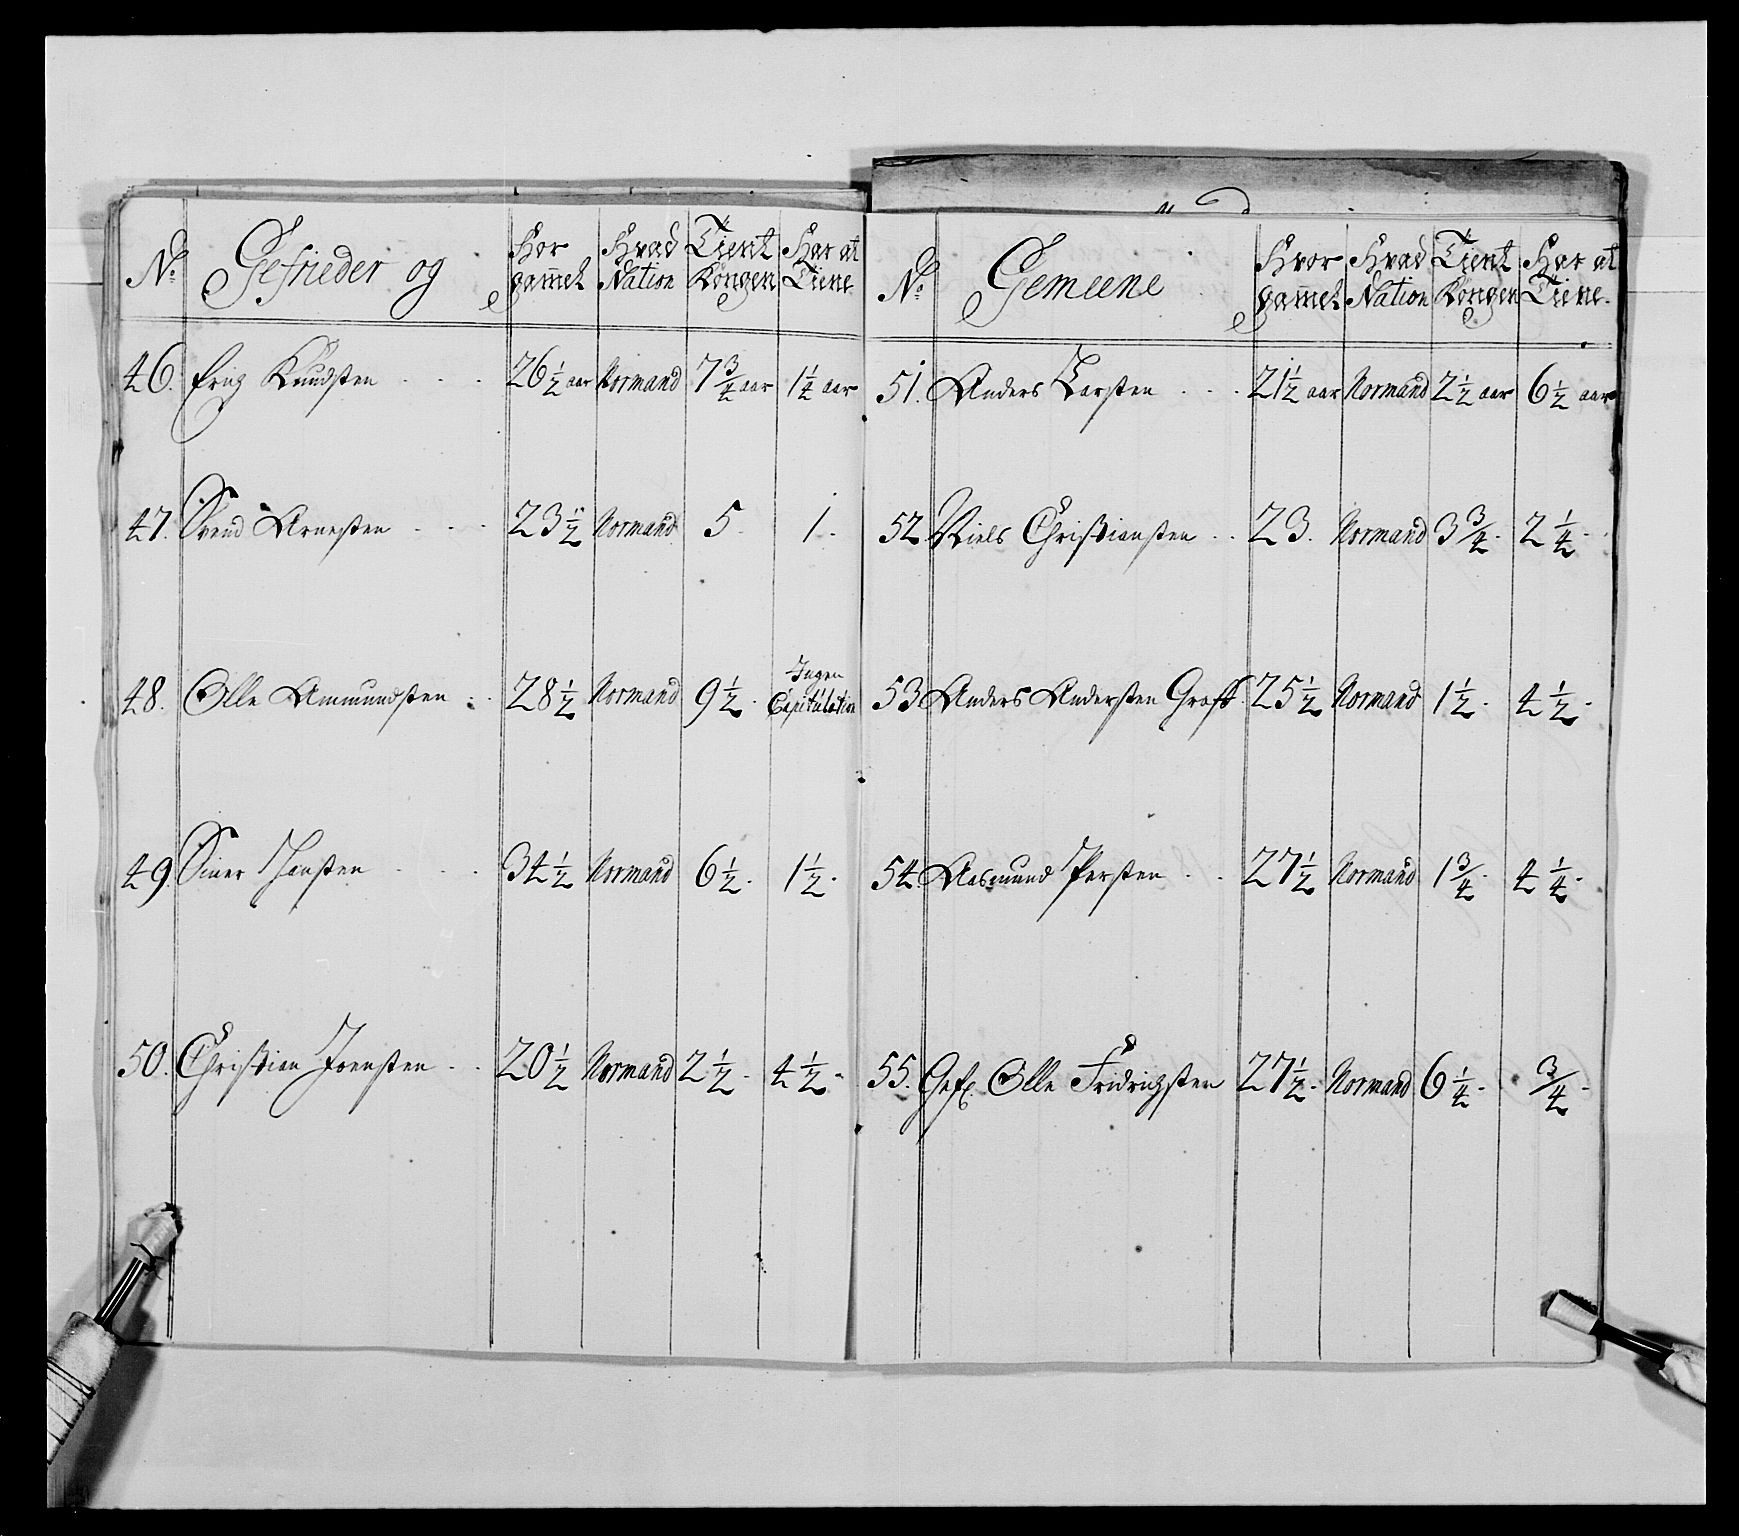 No. Gefrieder og Hor gammel Hvad Nation Tient Kongen Har at Tiene
46. Erig Knudsten . . . 26 1/2 aar Normand 7 3/4 aar 1 1/4 aar
47. Svend Arnesten . . . 23 1/2 Normand 5 1.
48. Olle Ammundsten . . 28 1/2 Normand 9 1/2. Ingen Capitulation
49. Siver Hansten . . . 34 1/2 Normand 6 1/2. 1 1/2.
50. Christian Joensten . . 20 1/2 Normand 2 1/2. 4 1/2.
No. Gemeene Hvor gammel Hvad Nation Tient Kongen Har at Tiene.
51. Anders Larsten . . . 21 1/2 aar Normand 2 1/2 aar 6 1/2 aar
52 Niels Christiansten . . 23. Normand 3 3/4. 2 1/4.
53 Anders Andersten Groff. 25 1/2 Normand 1 1/2. 4 1/2.
54 Aasmund Persten . . 27 1/2 Normand 1 3/4. 4 1/4.
55. Gefr. Olle Fridrigsten 27 1/2. Normand 6 1/4. 3/4.